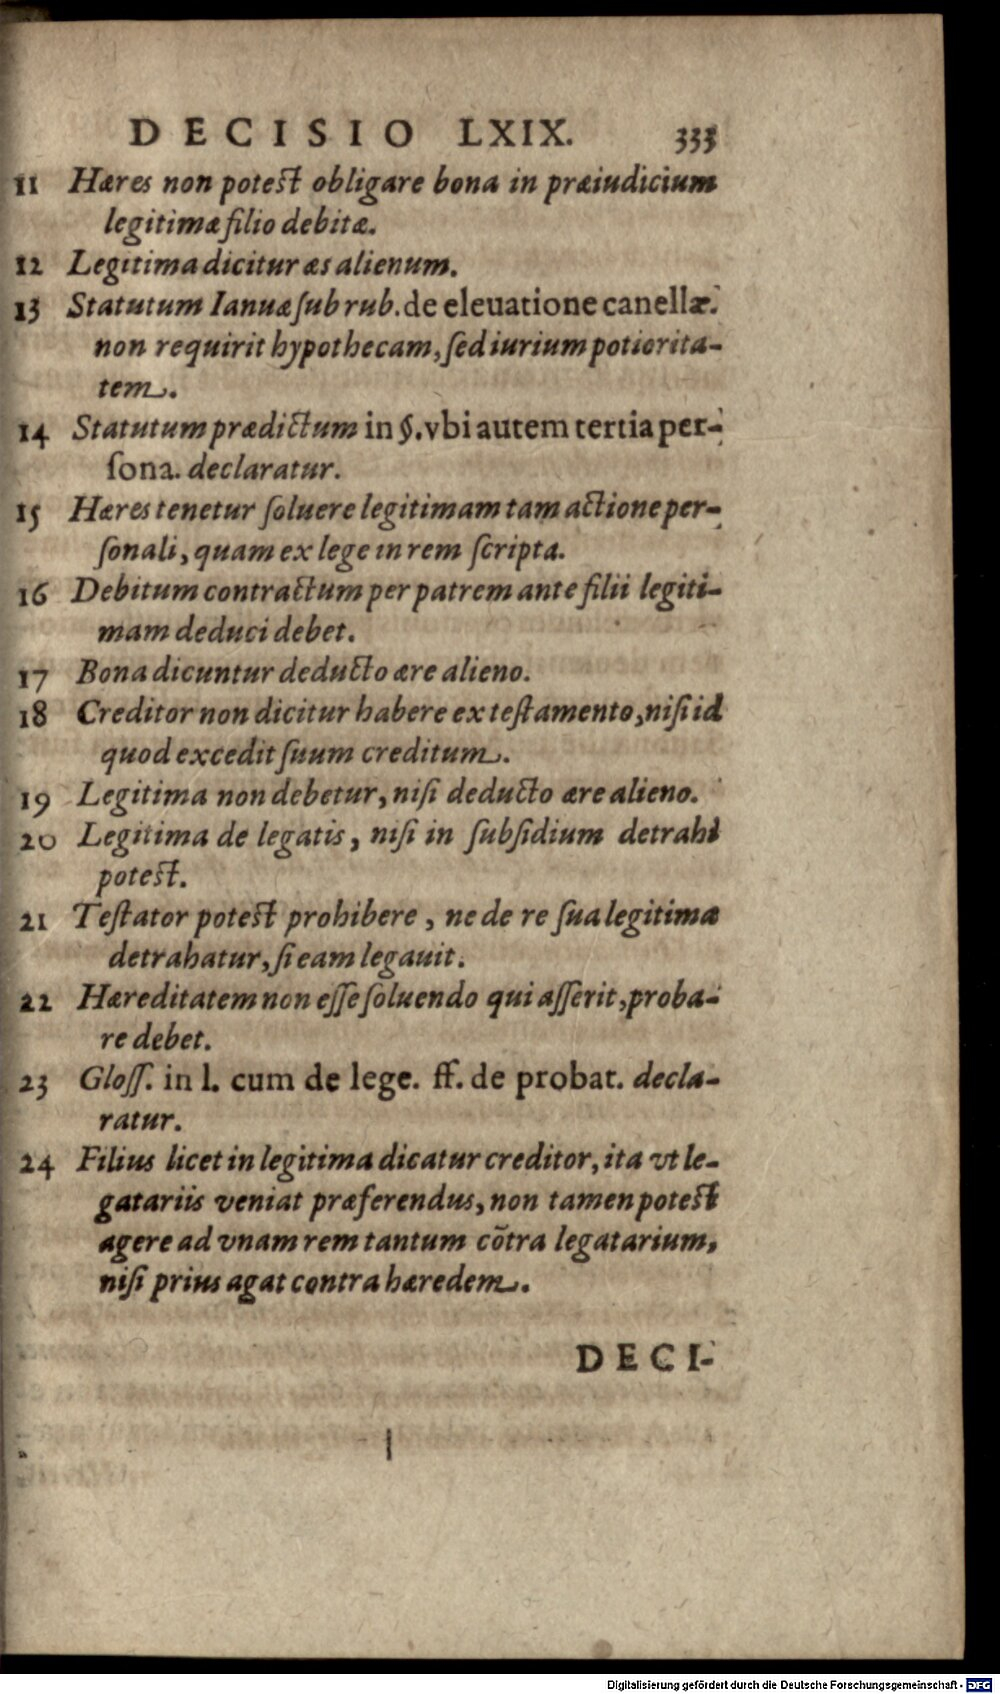 DECISIO LXIX. 333
11 Hæres non potest obligare bona in præiudicium
legitimæ filio debitæ.
12 Legitima dicitur æs alienum.
13 Statutum Ianuæ ſub rub. de eleuatione canellæ.
non requirit hypothecam, ſed iurium potiorita-
tem.
14 Statutum prædictum in §. vbi autem tertia per-
ſona. declaratur.
15 Hæres tenetur ſoluere legitimam tam actione per-
ſonali, quam ex lege in rem ſcripta.
16 Debitum contractum per patrem ante filii legiti-
mam deduci debet.
17 Bona dicuntur deducto ære alieno.
18 Creditor non dicitur habere ex teſtamento, niſi id
quod excedit ſuum creditum.
19 Legitima non debetur, niſi deducto ære alieno.
20 Legitima de legatis, niſi in ſubſidium detrahi
potest.
21 Teſtator potest prohibere, ne de re ſua legitima
detrahatur, ſi eam legauit.
22 Hæreditatem non eſſe ſoluendo qui aſſerit, proba-
re debet.
23 Gloſſ. in l. cum de lege. ff. de probat. decla-
ratur.
24 Filius licet in legitima dicatur creditor, ita vt le-
gatariis veniat præferendus, non tamen potest
agere ad vnam rem tantum cõtra legatarium,
niſi prius agat contra hæredem.
DECI-
Digitalisierung gefördert durch die Deutsche Forschungsgemeinschaft - DFG